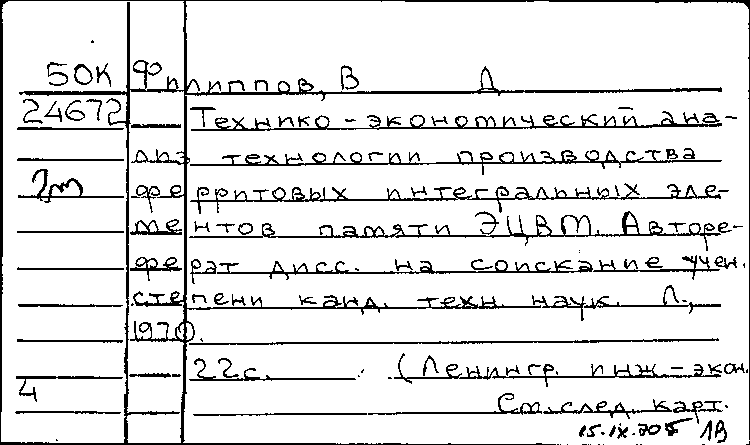 50К Филиппов, В Д
24672 Технико-экономический ана-
лиз технологии производства
2т ферритовых интегральных эле-
ментов памяти ЭЦВМ. Авторе-
ферат дисс. на соискание учен.
степени канд. техн. наук. Л.,
1970.
22с. (Ленингр. инж-экон.
4 См. след. карт.
15.IX.70